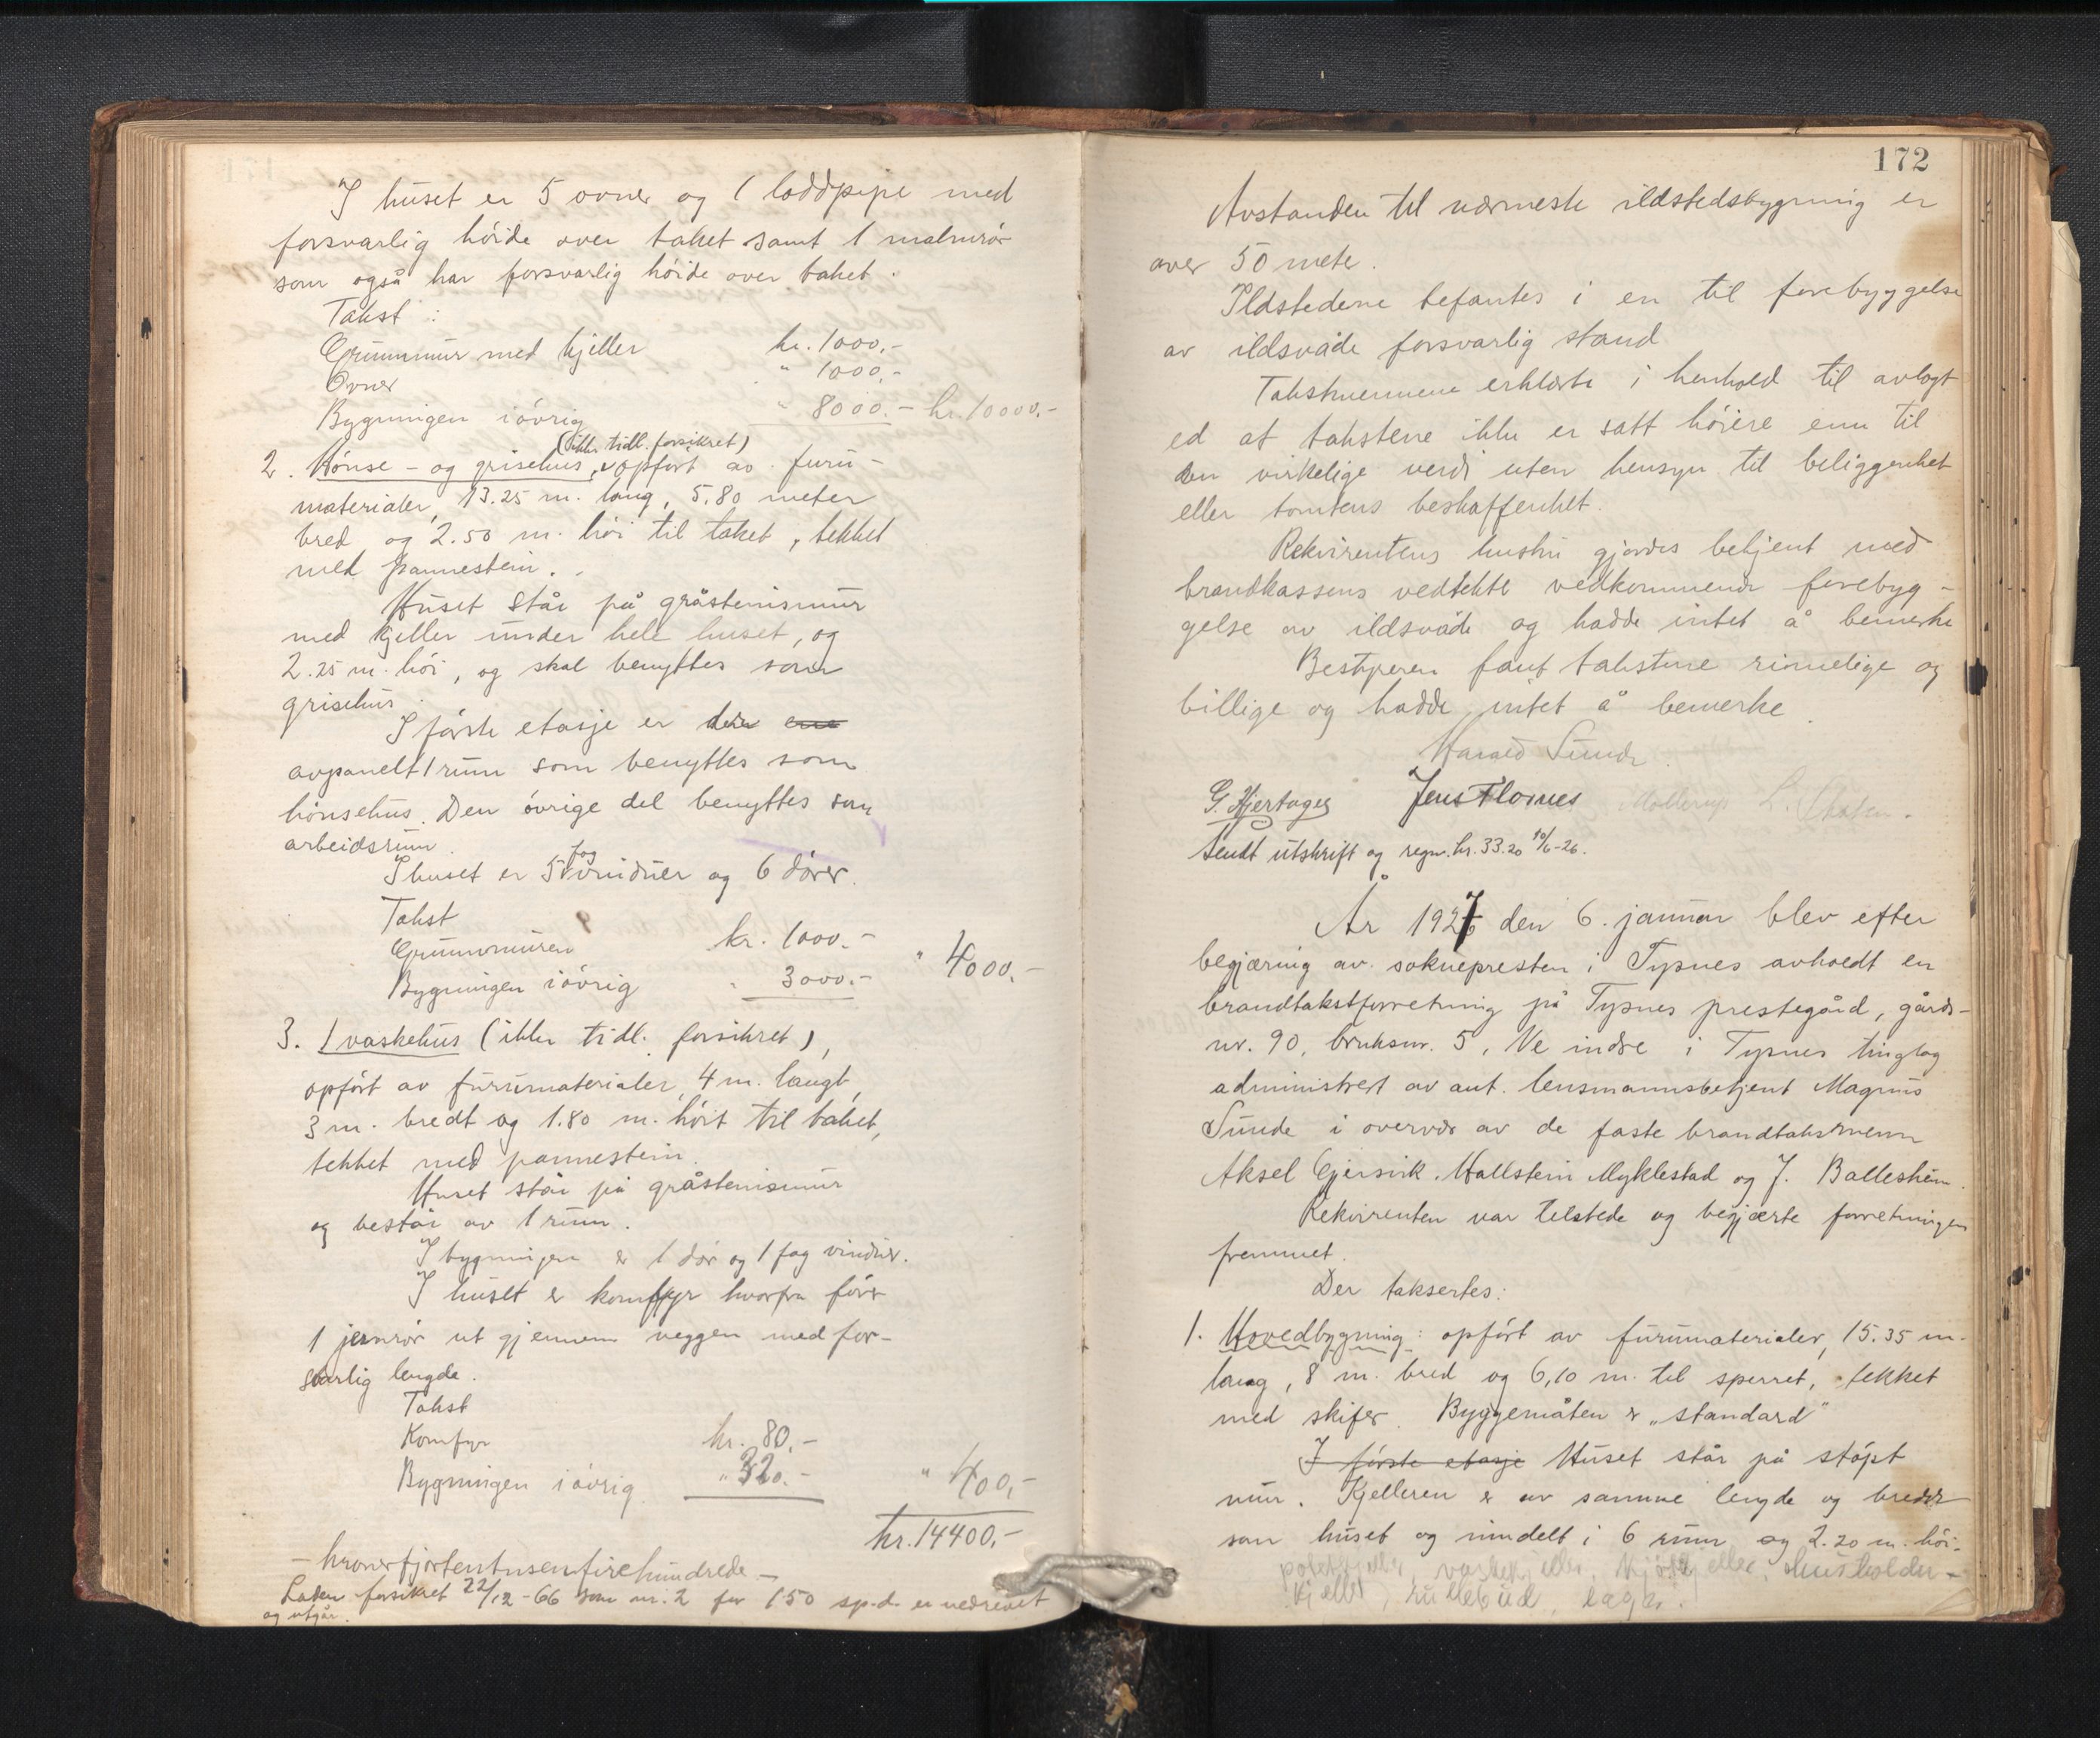 I huset er 5 ovner og 1 loddpipe med
forsvarlig höide over taket samt 1 malmrör
som også har forsvarlig höide over taket.
Takst:
Grunnmur med kjeller kr. 1000.-
Ovner " 1000.-
Bygningen iövrig " 8000.- kr. 10000.-
(ikke tidl. forsikret)
2. Hönse- og grisehus, opfört av furu-
materialer, 13.25 m. lang, 5.80 meter
bred og 2.50 m. höi til taket, tekket
med pannestein.
Huset står på gråstensmur
med kjeller under hele huset, og
2.25 m. höi, og skal benyttes som
grisehus.
I förste etasje er
avpanelt 1 rum som benyttes som
hönsehus. Den övrige del benyttes som
arbeidsrum.
I huset er 5 fag vinduer og 6 dörer.
Takst
Grunnmuren kr. 1000.-
Bygningen iövrig " 3000.- " 4000.-
3. 1 vaskehus (ikke tidl. forsikret),
opfört av furumaterialer, 4 m. langt,
3 m. bredt og 1.80 m. höit til taket,
tekket med pannestein.
Huset står på gråstensmur
og består av 1 rum.
I bygningen er 1 dör og 1 fag vinduer.
I huset er komfyr hvorfra förer
1 jernrör ut gjennem veggen med for-
svarlig lengde.
Takst
Komfyr kr. 80.-
Bygningen iövrig " 320.- " 400.-
kr. 14400.-
- kroner fjortentusenfirehundrede -
Laden forsikret 22/12-66 som nr. 2 for 150 sp.d. er nedrevet
og utgår.
172
Avstanden til nærmeste ildstedsbygning er
over 50 meter.
Ildstedene befantes i en til forebyggelse
av ildsvåde forsvarlig stand
Takstmennene erklærte i henhold til avlagt
ed at takstene ikke er satt höiere enn til
den virkelige verdi uten hensyn til beliggenhet
eller tomtens beskaffenhet.
Rekvirentens hustru gjordes bekjent med
brandkassens vedtekte vedkommende forebyg-
gelse av ildsvåde og hadde intet å bemerke
Bestyreren fant takstene rimelige og
billige og hadde intet å bemerke.
Harald Sunde
G. Hjertager Jens Flornes
Sendt utskrift og regn. kr. 33.20 10/6-26.
År 1927 den 6. januar blev efter
begjæring av soknepresten i Tysnes avholdt en
brandtakstforretning på Tysnes prestegård, gårds-
nr. 90, bruksnr. 5, Ve indre i Tysnes tinglag
administrert av aut. lensmannsbetjent Magnus
Sunde i overvær av de faste brandtakstmenn
Aksel Gjersvik, Hallstein Myklestad og J. Ballesheim.
Rekvirenten var tilstede og begjærte forretningen
fremmet.
Der taksertes:
1. Hovedbygning: opfört av furumaterialer, 15.35 m.
lang, 8 m. bred og 6,10 m. til sperret, tekket
med skifer. Byggemåten er „standard"
I förste etasje Huset står på stöpt
mur. Kjelleren er av samme lengde og bredde
som huset og inndelt i 6 rum og 2.20 m. höi.
potetkjeller, vaskekjeller,
kjeller, rullebud, lager.